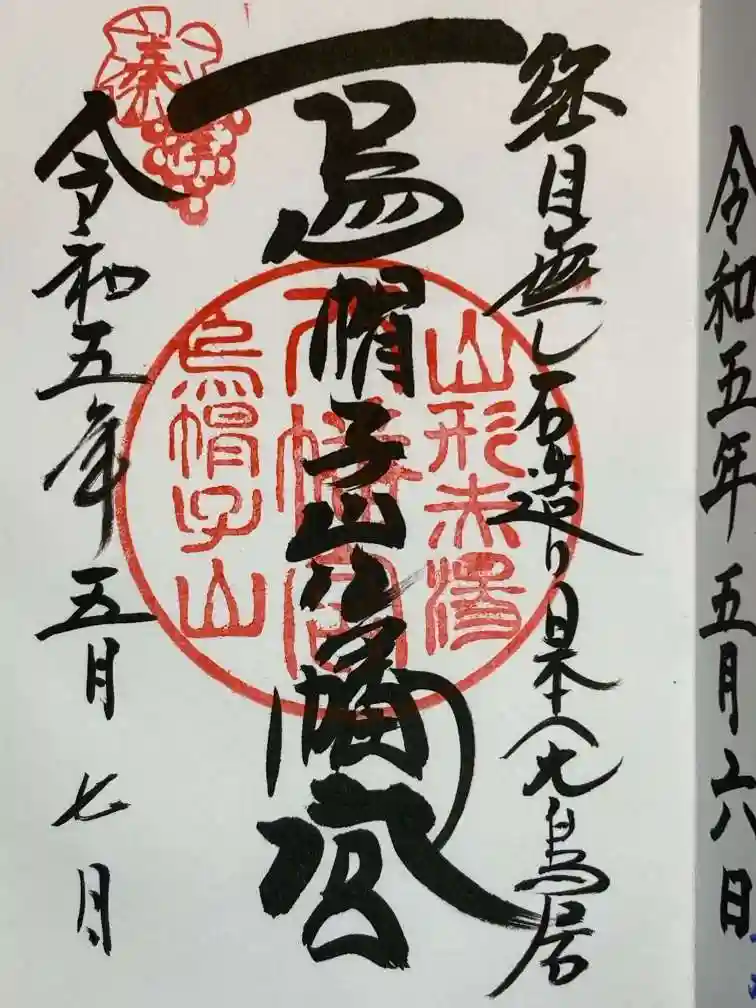 令和五年五月六日
継目無し石造り日本一大鳥居
烏帽子山八幡宮
山形赤湯
八幡宮
烏帽子山
奉拝
令和五年五月七月